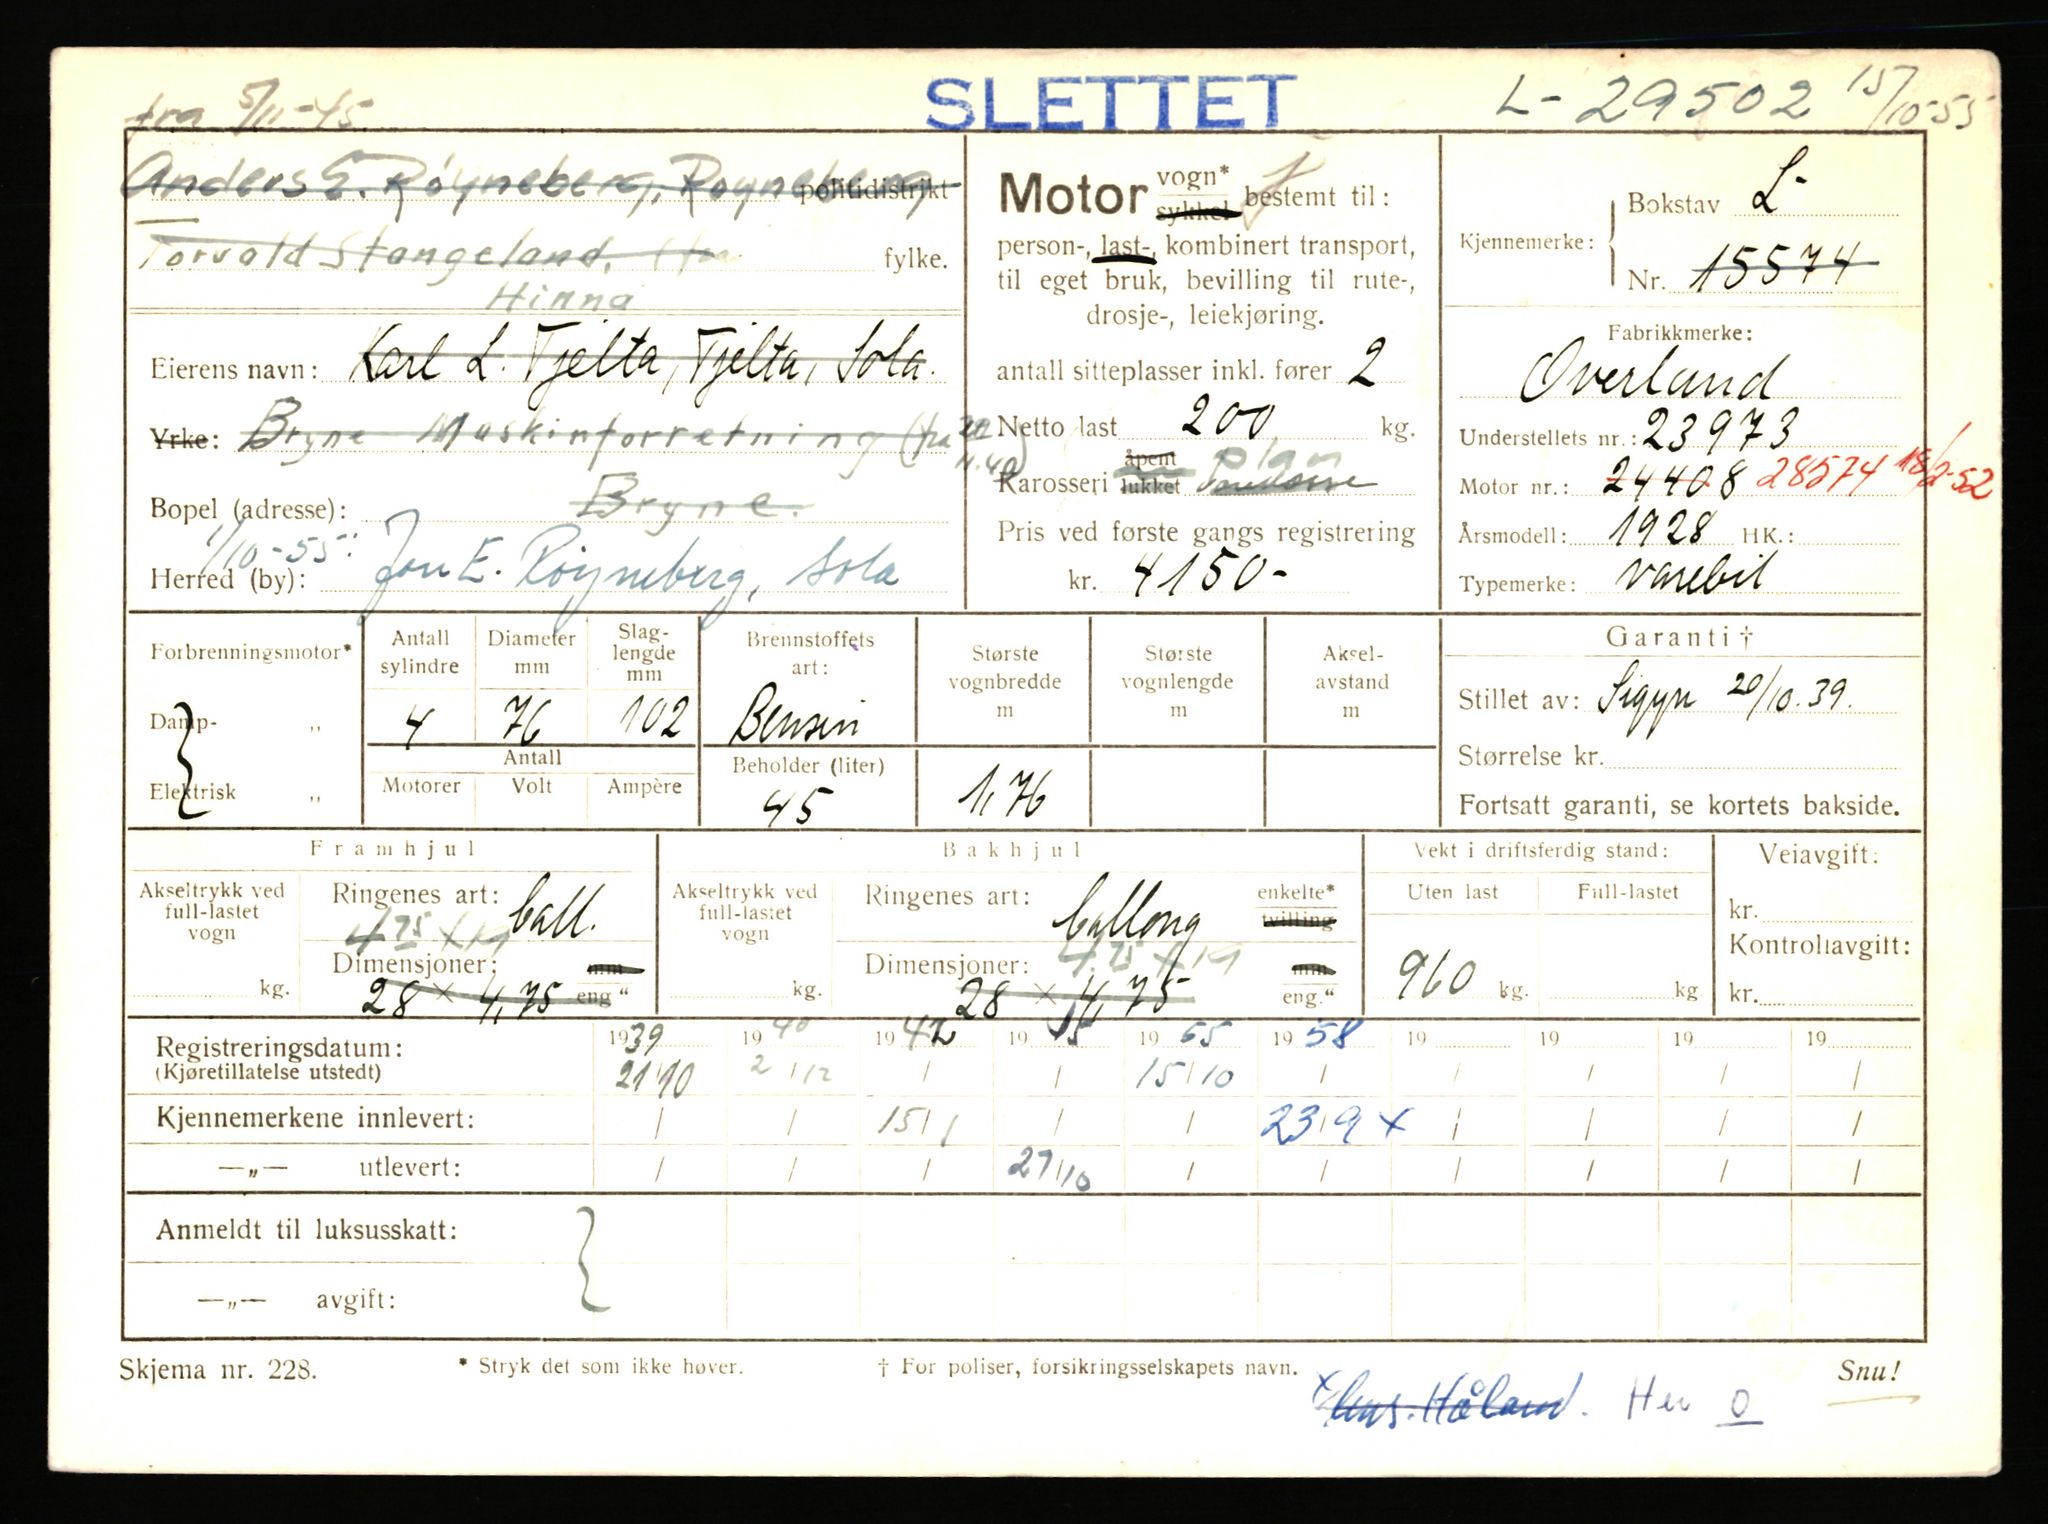 SLETTET
L-29502 15/10-55
fra 5/11-45
Anders E. Røyneberg, Røyneberg politidistrikt
Torvald Stangeland, fylke.
Hinna
Eierens navn: Karl L. Tjelta, Tjelta, Sola.
Yrke: Bryne Maskinforretning (fra
Bopel (adresse): Bryne.
1/10-55:
Herred (by): Jon E. Røyneberg, Sola
Motor vogn* sykkel bestemt til:
person-, last-, kombinert transport,
til eget bruk, bevilling til rute-,
drosje-, leiekjøring.
antall sitteplasser inkl. fører 2
Netto last 200 kg.
Karosseri åpent lukket plan
Pris ved første gangs registrering
kr. 4150-
Kjennemerke: Bokstav L-
Nr. 15574
Fabrikkmerke:
Overland
Understellets nr.: 23973
Motor nr.: 24408 28574 18/2-52
Årsmodell: 1928 HK.:
Typemerke: varebil
Forbrenningsmotor*
Damp- „
Elektrisk „
Antall sylindre
Diameter mm
Slag-lengde mm
4 76 102
Antall
Motorer Volt Ampère
Brennstoffets art:
Bensin
Beholder (liter)
45
Største vognbredde m
1,76
Største vognlengde m
Aksel-avstand m
Garanti †
Stillet av: Sigyn 20/10.39.
Størrelse kr.
Fortsatt garanti, se kortets bakside.
Framhjul
Akseltrykk ved full-lastet vogn
kg.
Ringenes art: ball.
4.75 x 19
Dimensjoner: mm
28 x 4,75 eng "
Bakhjul
Akseltrykk ved full-lastet vogn
kg.
Ringenes art: ballong enkelte* tvilling
4.75 x 19
Dimensjoner: mm
28 x 4,75 eng."
Vekt i driftsferdig stand:
Uten last Full-lastet
960 kg. kg
Veiavgift:
kr.
Kontrollavgift:
kr.
Registreringsdatum: 1939 1940 1942 1945 1955 1958 19 19 19 19
(Kjøretillatelse utstedt) 21/10 2/12 / / 15/10 / / / / /
Kjennemerkene innlevert: / / 15/1 / / 23/9 x / / / /
—„— utlevert: / / / 27/10 / / / / / /
Anmeldt til luksusskatt:
—„— avgift:
Skjema nr. 228. * Stryk det som ikke høver. † For poliser, forsikringsselskapets navn. Snu!
x Håland. Her 0